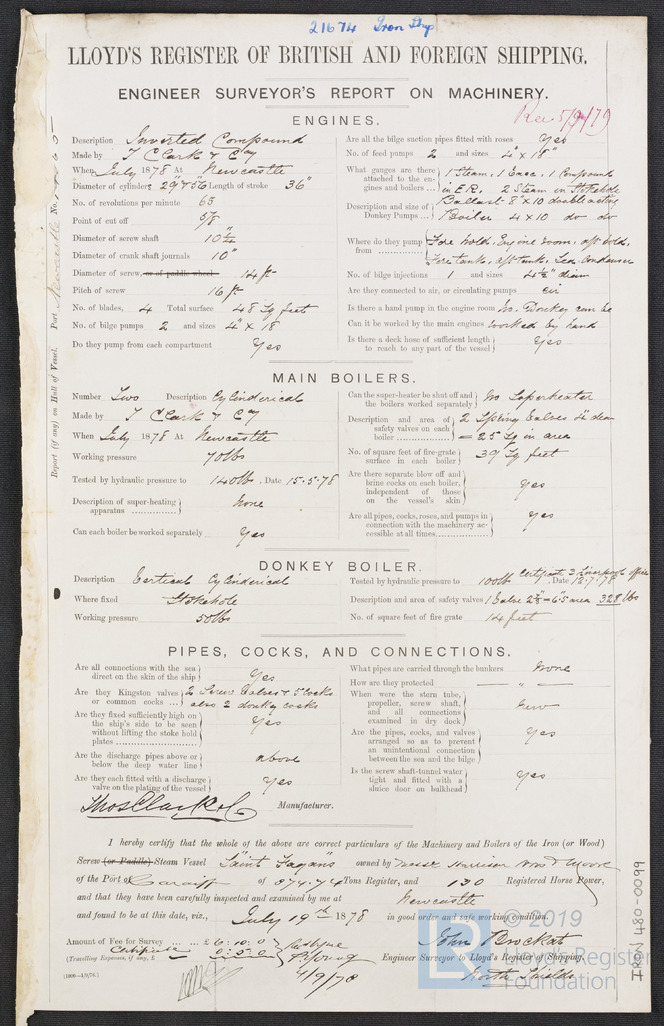 21674 Iron Shp
LLOYD'S REGISTER OF BRITISH AND FOREIGN SHIPPING.
ENGINEER SURVEYOR'S REPORT ON MACHINERY.
Rec 5/9/79
ENGINES.
Description Inverted Compound
Made by T Clark & Coy
When July 1878 At Newcastle
Diameter of cylinders 29" & 56 Length of stroke 36"
No. of revolutions per minute 65
Point of cut off 5/8
Diameter of screw shaft 10 1/4"
Diameter of crank shaft journals 10"
Diameter of screw, or of paddle wheel 14 ft
Pitch of screw 16 ft
No. of blades, 4 Total surface 48 Sq feet
No. of bilge pumps 2 and sizes 4" x 18"
Do they pump from each compartment Yes
Are all the bilge suction pipes fitted with roses Yes
No. of feed pumps 2 and sizes 4" x 18"
What gauges are there attached to the engines and boilers ... 1 Steam, 1 Vacc, 1 Compound
in E.R. 2 Steam in Stokehole
Description and size of Donkey Pumps ... Ballast 8" x 10 double acting
1 Boiler 4 x 10 do do
Where do they pump from Fore hold, Engine room, aft hold,
Fore tank, aft tank, Sea, Condenser
No. of bilge injections 1 and sizes 4 1/2" diam
Are they connected to air, or circulating pumps cir
Is there a hand pump in the engine room No. Donkey can be
Can it be worked by the main engines worked by hand
Is there a deck hose of sufficient length to reach to any part of the vessel Yes
MAIN BOILERS.
Number Two Description Cylinderical
Made by T Clark & Coy
When July 1878 At Newcastle
Working pressure 70 lbs
Tested by hydraulic pressure to 140 lb. Date 15.5.78
Description of super-heating apparatus ............... None
Can each boiler be worked separately Yes
Can the super-heater be shut off and the boilers worked separately No Superheater
Description and area of safety valves on each boiler ............... 2 Spring Valves 4" dea
= 25 Sq in area
No. of square feet of fire-grate surface in each boiler 39 Sq feet
Are there separate blow off and brine cocks on each boiler, independent of those on the vessel's skin Yes
Are all pipes, cocks, roses, and pumps in connection with the machinery accessible at all times Yes
DONKEY BOILER.
Description Vertical Cylinderical
Where fixed Stokehole
Working pressure 50 lbs
Tested by hydraulic pressure to 100 lb Date 12.7.78
Description and area of safety valves 1 Valve
No. of square feet of fire grate 14 feet
PIPES, COCKS, AND CONNECTIONS.
Are all connections with the sea direct on the skin of the ship Yes
Are they Kingston valves or common cocks ... 2 Screw Valves & 5 Cocks
also 2 donkey cocks
Are they fixed sufficiently high on the ship's side to be seen without lifting the stoke hold plates Yes
Are the discharge pipes above or below the deep water line above
Are they each fitted with a discharge valve on the plating of the vessel Yes
What pipes are carried through the bunkers None
How are they protected — " —
When were the stern tube, propeller, screw shaft, and all connections examined in dry dock New
Are the pipes, cocks, and valves arranged so as to prevent an unintentional connection between the sea and the bilge Yes
Is the screw shaft-tunnel water tight and fitted with a sluice door on bulkhead Yes
Thos Clark & Co Manufacturer.
I hereby certify that the whole of the above are correct particulars of the Machinery and Boilers of the Iron (or Wood)
Screw (or Paddle) Steam Vessel "Saint Fagans" owned by Messr Harrison Wood Moore
of the Port of Cardiff of 874.74 Tons Register, and 130 Registered Horse Power,
and that they have been carefully inspected and examined by me at Newcastle
and found to be at this date, viz., July 19th 1878 in good order and safe working condition.
John Brockat
Engineer Surveyor to Lloyd's Register of Shipping,
North Shields
Amount of Fee for Survey ... ... £ 6 : 10 : 0
Certificate 0 : 5 : 0
(Travelling Expenses, if any, £
4/9/78
Report (if any) on Hull of Vessel. Port Newcastle No.
IRON 480-0099
© 2019
Lloyd's Register
Foundation